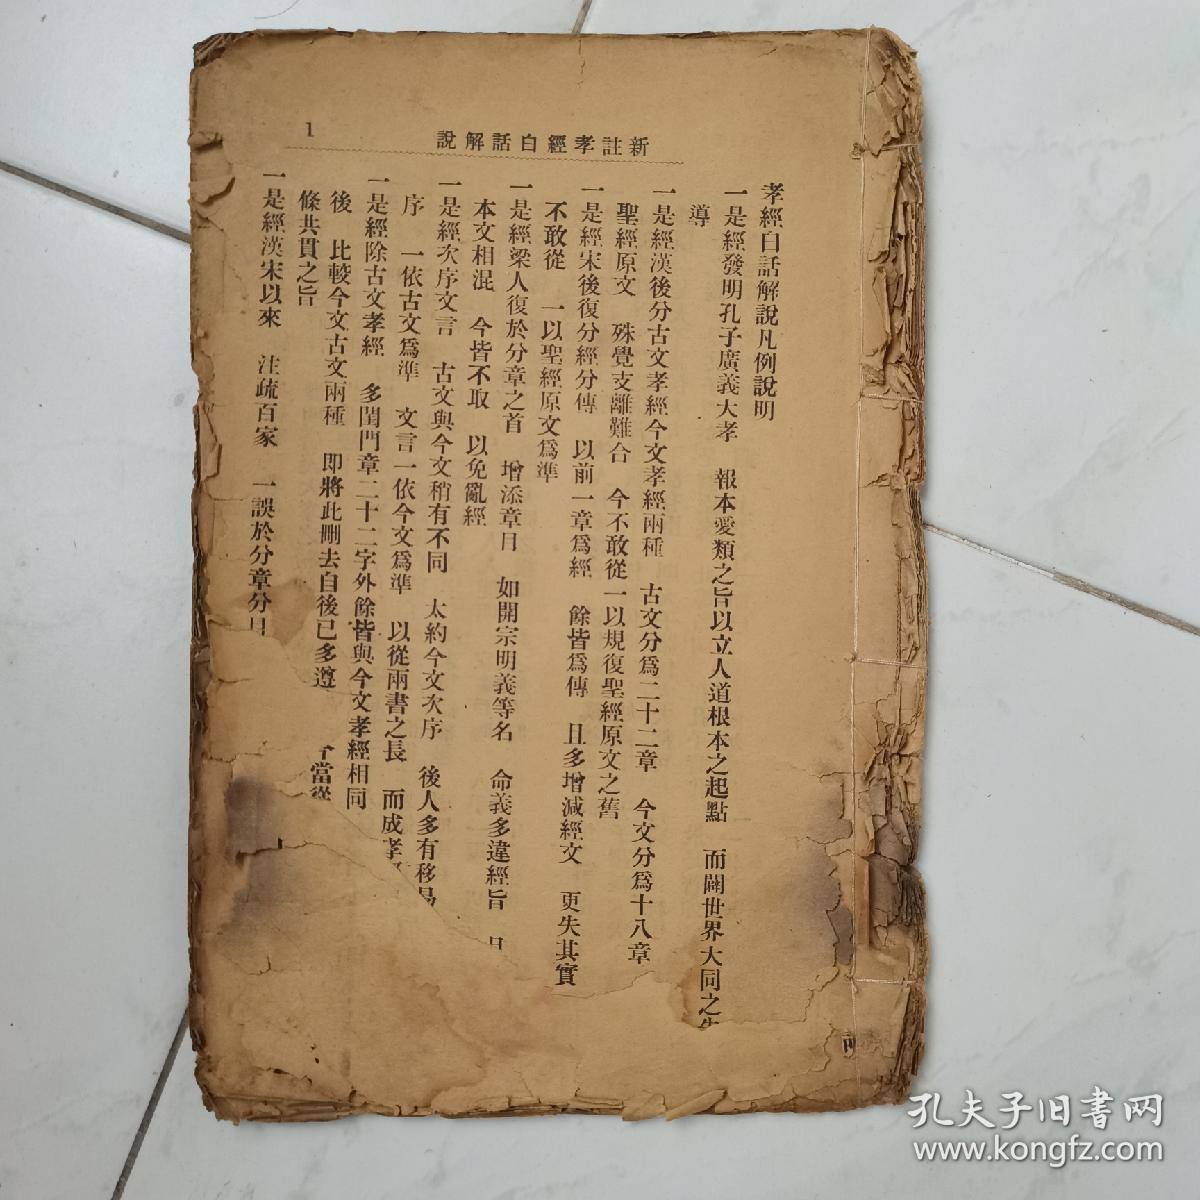 新註孝經白話解說
1
孝經白話解說凡例說明
一是經發明孔子廣義大孝　報本愛類之旨以立人道根本之起點　而闢世界大同之先
導
一是經漢後分古文孝經今文孝經兩種　古文分爲二十二章　今文分爲十八章
聖經原文　殊覺支離難合　今不敢從一以規復聖經原文之舊
一是經宋後復分經分傳　以前一章爲經　餘皆爲傳　且多增減經文　更失其實
不敢從　一以聖經原文爲準
一是經梁人復於分章之首　增添章目　如開宗明義等名　命義多違經旨　且
本文相混　今皆不取　以免亂經
一是經次序文言　古文與今文稍有不同　太約今文次序　後人多有移易
序　一依古文爲準　文言一依今文爲準　以從兩書之長　而成孝
一是經除古文孝經　多閨門章二十二字外餘皆與今文孝經相同
後　比較今文古文兩種　即將此刪去自後已多遵　今當從
條共貫之旨
一是經漢宋以來　注疏百家　一誤於分章分目
孔夫子旧书网
www.kongfz.com